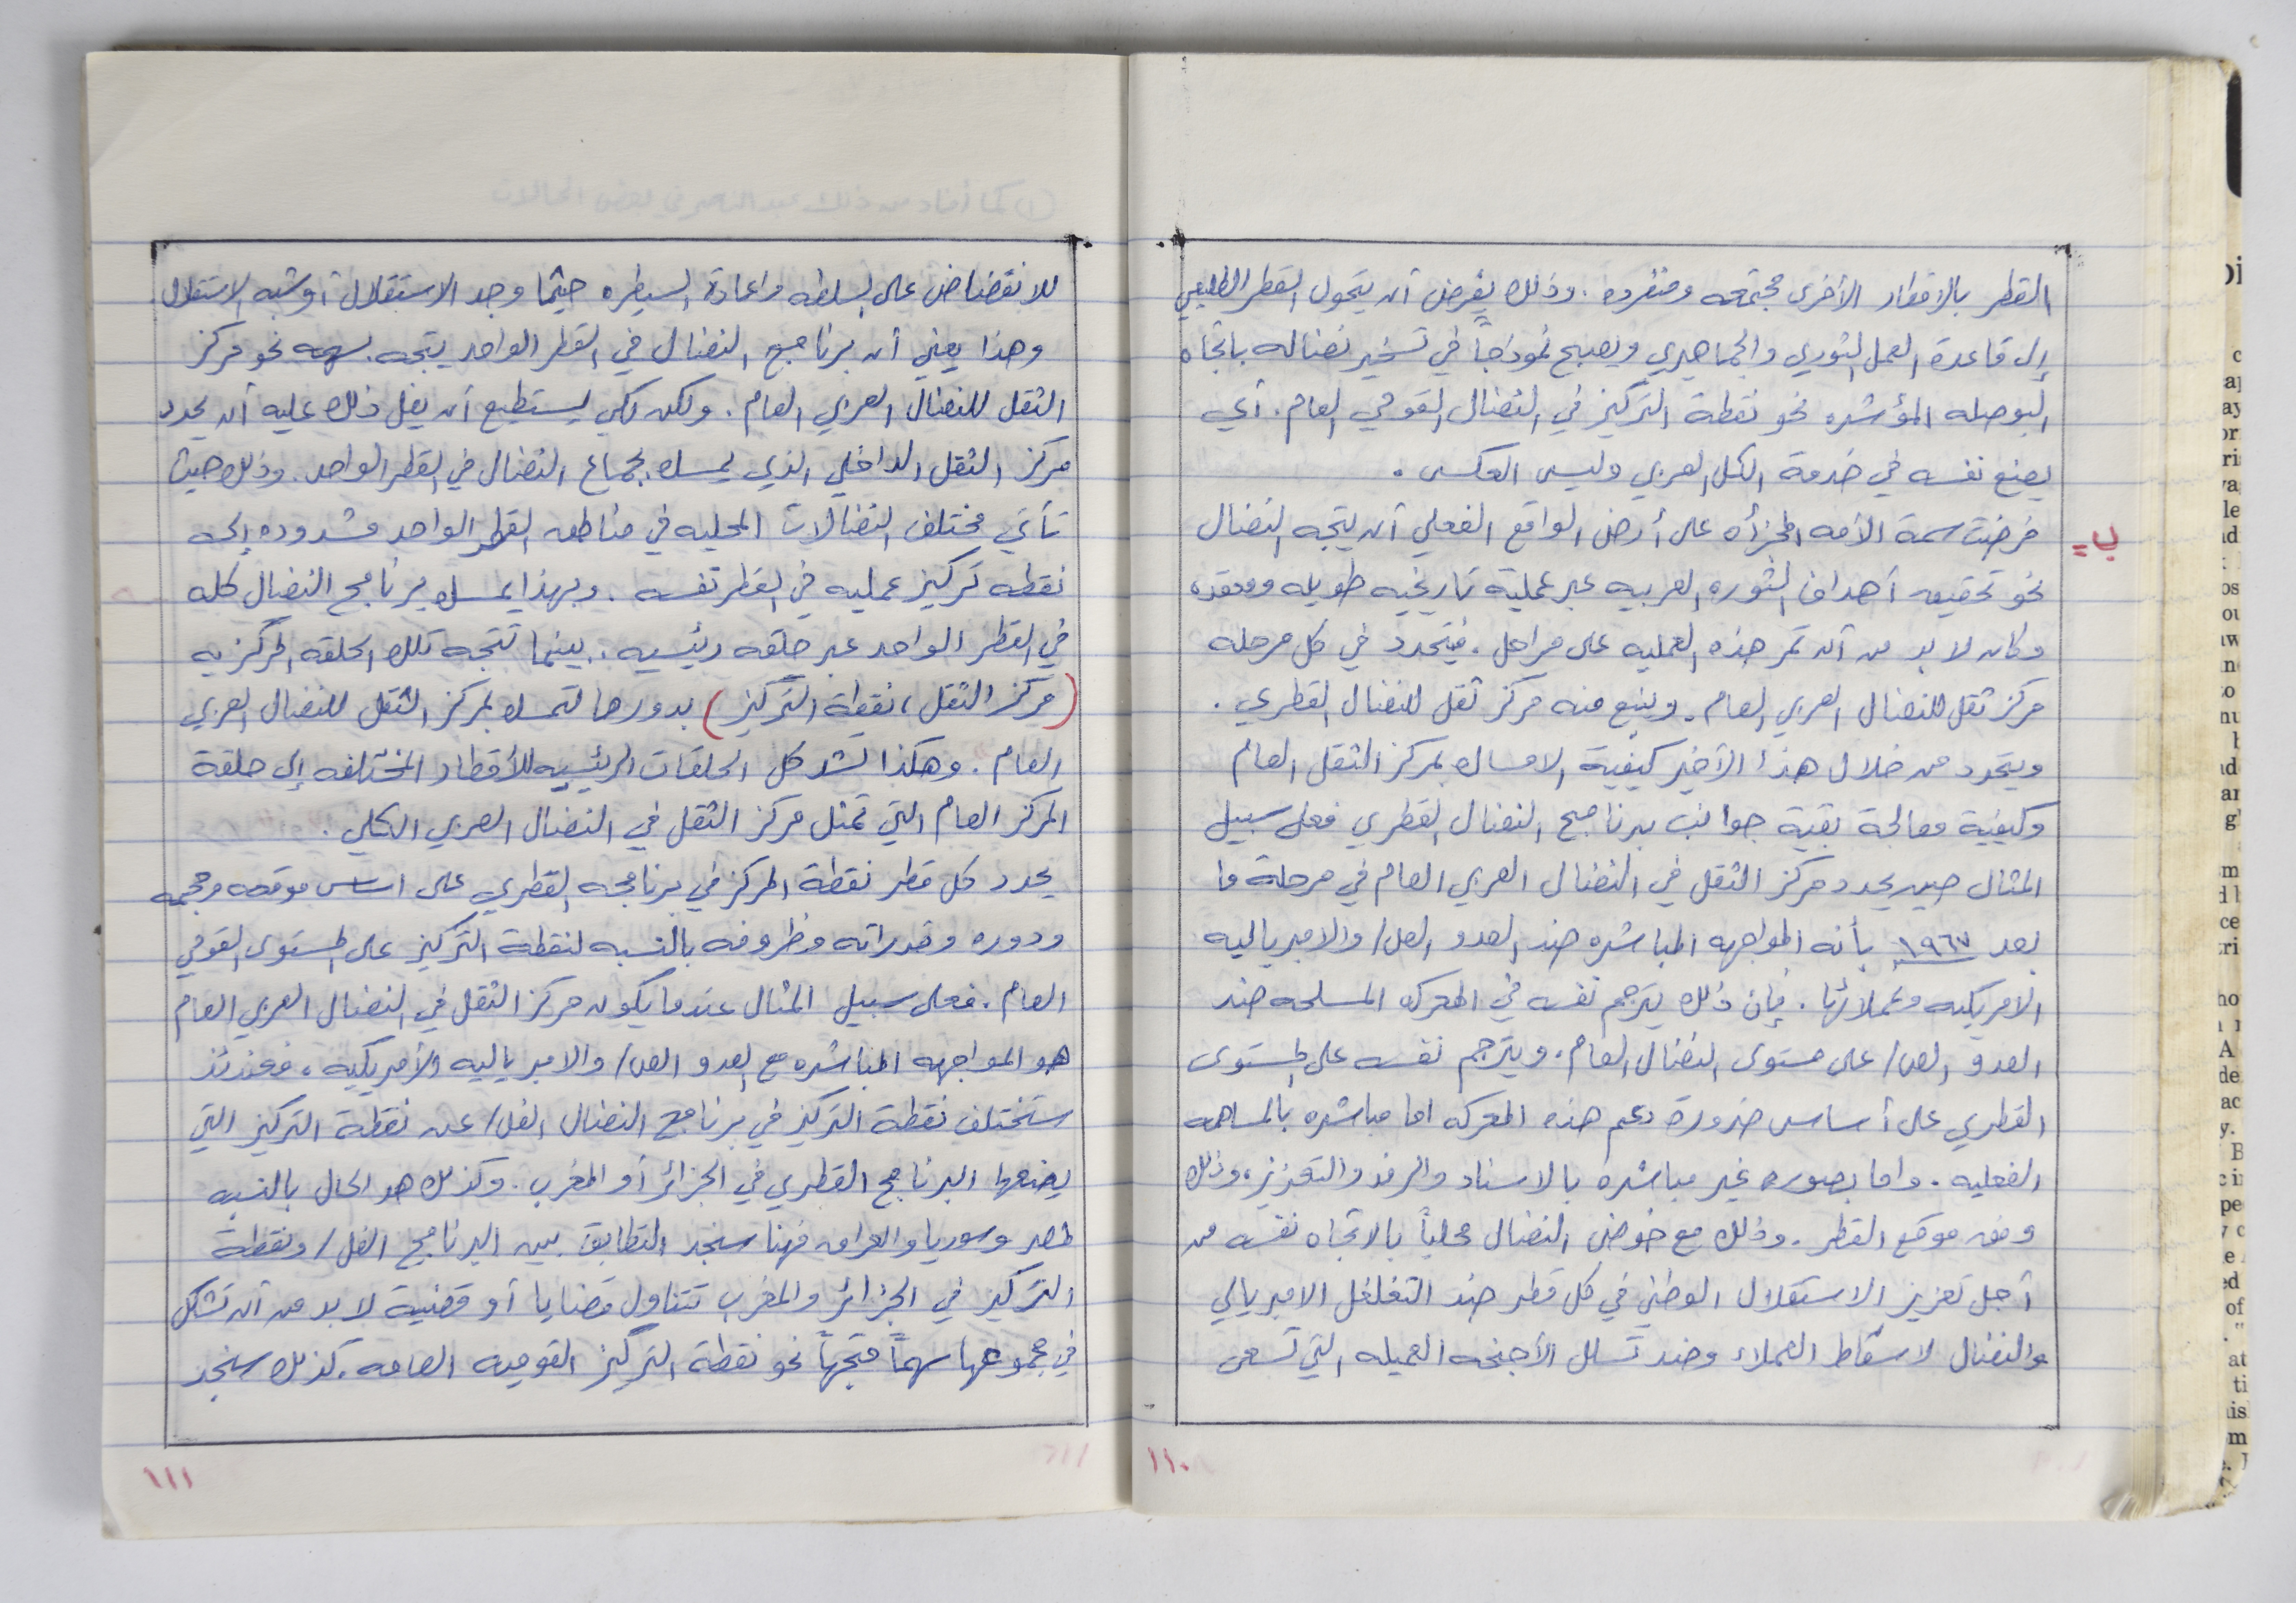 القطر بالاقطار الأخرى مجتمعه ومنفرده. وذلك يفرض أن يتحول القطر الطليعي
إلى قاعدة العمل الثوري والجماهيري ويصبح نموذجاً في تسخير نضاله باتجاه
البوصله المؤشره نحو نقطة التركيز في النضال القومي العام. أي
يضع نفسه في خدمة الكل العربي وليس العكس.
ب= فرضت سمة الأمه المجزأه على أرض الواقع الفعلي أن يتجه النضال
نحو تحقيق أهداف الثوره العربيه عبر عملية تاريخيه طويله ومعقده
وكان لا بد من أن تمر هذه العمليه على مراحل. فيتحدد في كل مرحله
مركز ثقل للنضال العربي العام. وينبع منه مركز ثقل للنضال القطري.
ويتحدد من خلال هذا الأخير كيفية الامساك بمركز الثقل العام
وكيفية معالجة بقية جوانب برنامج النضال القطري فعلى سبيل
المثال حين يحدد مركز الثقل في النضال العربي العام في مرحلة ما
بعد ١٩٦٧ بأنه المواجهه المباشره ضد العدو الص/ والامبرياليه
الامريكيه وعملائها. فإن ذلك يترجم نفسه في المعركه المسلحه ضد
العدو الص/ على مستوى النضال العام. ويترجم نفسه على المستوى
القطري على أساس ضرورة دعم هذه المعركه اما مباشره بالمساهمه
الفعليه. واما بصوره غير مباشره بالاسناد والرفد والتعزيز، وذلك
وفق موقع القطر. وذلك مع خوض النضال محلياً بالاتجاه نفسه من
أجل تعزيز الاستقلال الوطني في كل قطر ضد التغلغل الامبريالي
والنضال لاسقاط العملاء وضد تسلل الأجنحه العميله التي تسعى
١١٠
للانقضاض على السلطه واعادة السيطره حيثما وجد الاستقلال أو شبه الاستقلال.
وهذا يعني أن برنامج النضال في القطر الواحد يتجه بسهمه نحو مركز
الثقل للنضال العربي العام. ولكن لكي يستطيع أن يفعل ذلك عليه أن يحدد
مركز الثقل الداخلي الذي يمسك بجماع النضال في القطر الواحد. وذلك حيث
تأتي مختلف النضالات المحليه في مناطق القطر الواحد مشدوده إلى
نقطه تركيز عمليه في القطر نفسه. وبهذا يمسك برنامج النضال كله
في القطر الواحد عبر حلقه رئيسيه. بينما تتجه تلك الحلقه المركزيه
(مركز الثقل، نقطة التركيز) بدورها لتمسك بمركز الثقل للنضال العربي
العام. وهكذا تشد كل الحلقات الرئيسيه للأقطار المختلفه إلى حلقة
المركز العام التي تمثل مركز الثقل في النضال العربي الكلي.
يحدد كل قطر نقطة المركز في برنامجه القطري على اساس موقعه وحجمه
ودوره وقدراته وظروفه بالنسبه لنقطة التركيز على المستوى القومي
العام. فعلى سبيل المثال عندما يكون مركز الثقل في النضال العربي العام
هو المواجهه المباشره مع العدو الص/ والامبرياليه الأمريكيه، فعندئذ
ستختلف نقطة التركيز في برنامج النضال الفل/ عن نقطة التركيز التي
يضعها البرنامج القطري في الجزائر أو المغرب. وكذلك هو الحال بالنسبه
لمصر وسوريا والعراق فهنا سنجد التطابق بين البرنامج الفل/ ونقطة
التركيز في الجزائر والمغرب تتناول قضايا أو قضية لا بد من أن تشكل
في مجموعها سهماً متجهاً نحو نقطة التركيز القوميه العامه. كذلك سنجد
١١١